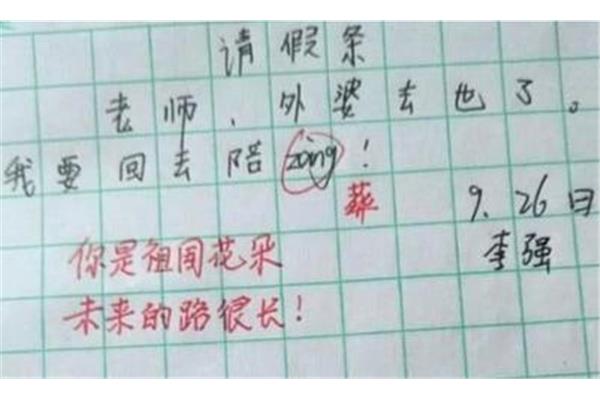 请假条
老师、外婆去也了。
我要回去陪zàng！
葬
9.26日
李强
你是祖国花朵
未来的路很长！